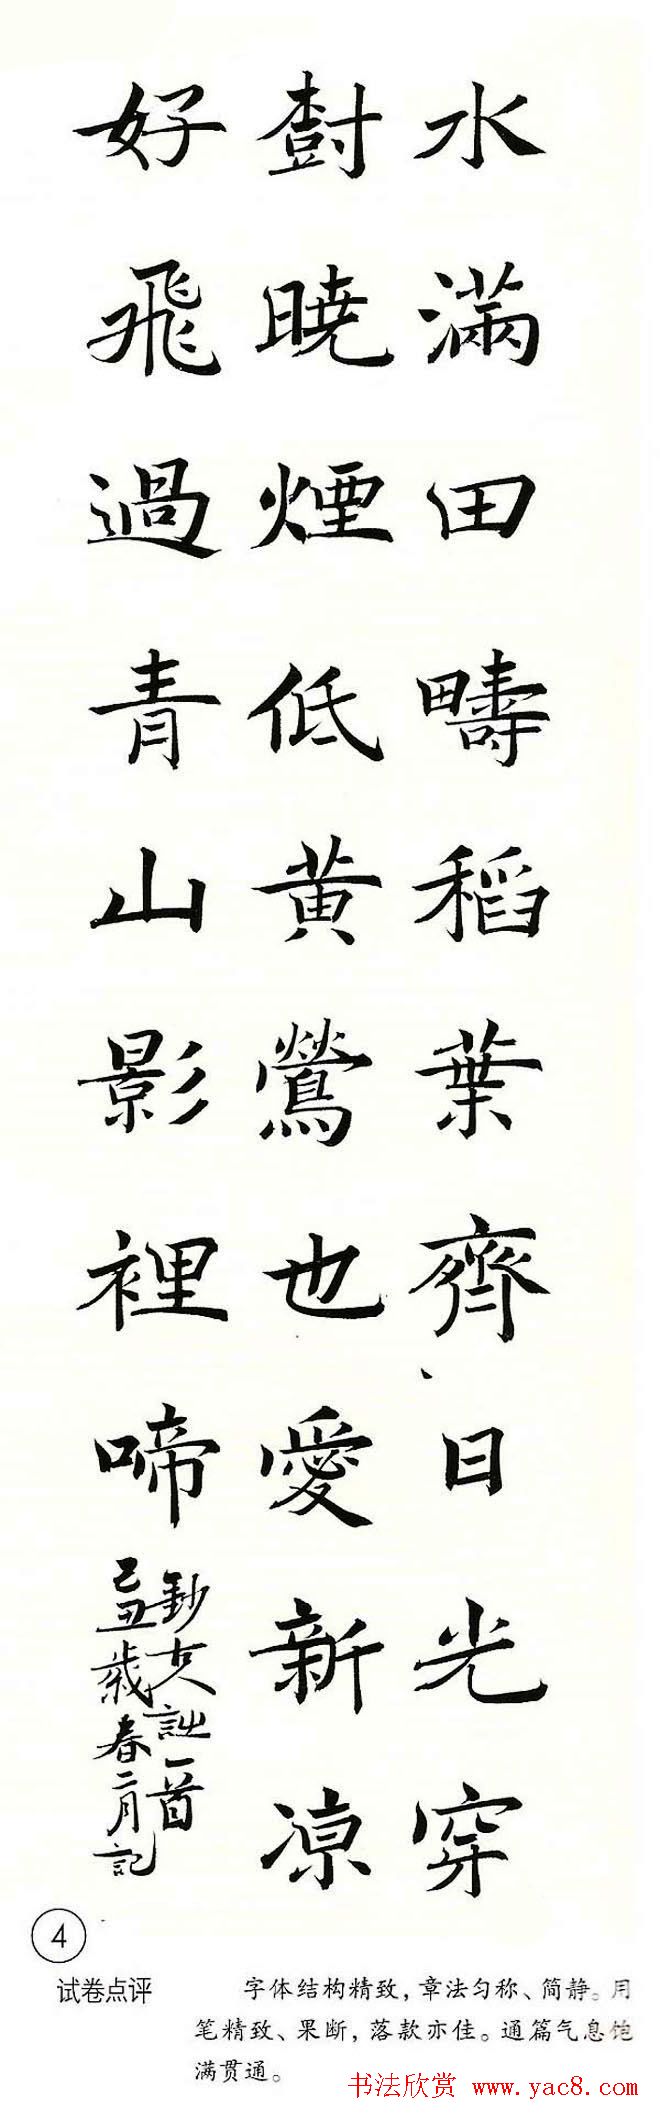 水滿田疇稻葉齊日光穿
樹曉煙低黄鶯也愛新凉
好飛過青山影裡啼
鈔古人詩一首
己丑歲春二月記
4
试卷点评
字体结构精致，章法匀称、简静。用
笔精致、果断，落款亦佳。通篇气息饱
满贯通。
书法欣赏 www.yac8.com